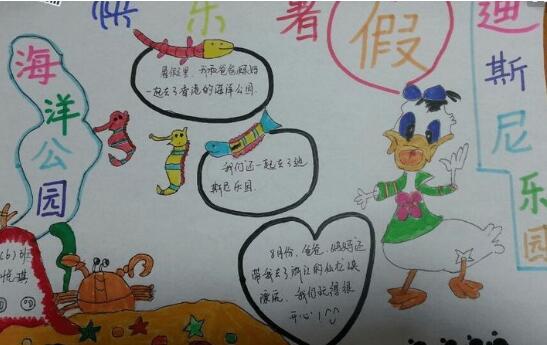 快乐暑假
海洋公园
迪斯尼乐园
暑假里，我和爸爸妈妈
一起去了香港的海洋公园.
我们还一起去了迪
斯尼乐园.
8月份，爸爸、妈妈还
带我去了浙江的仙龙峡
漂流，我们玩得很
开心!
(6)班
悦琪